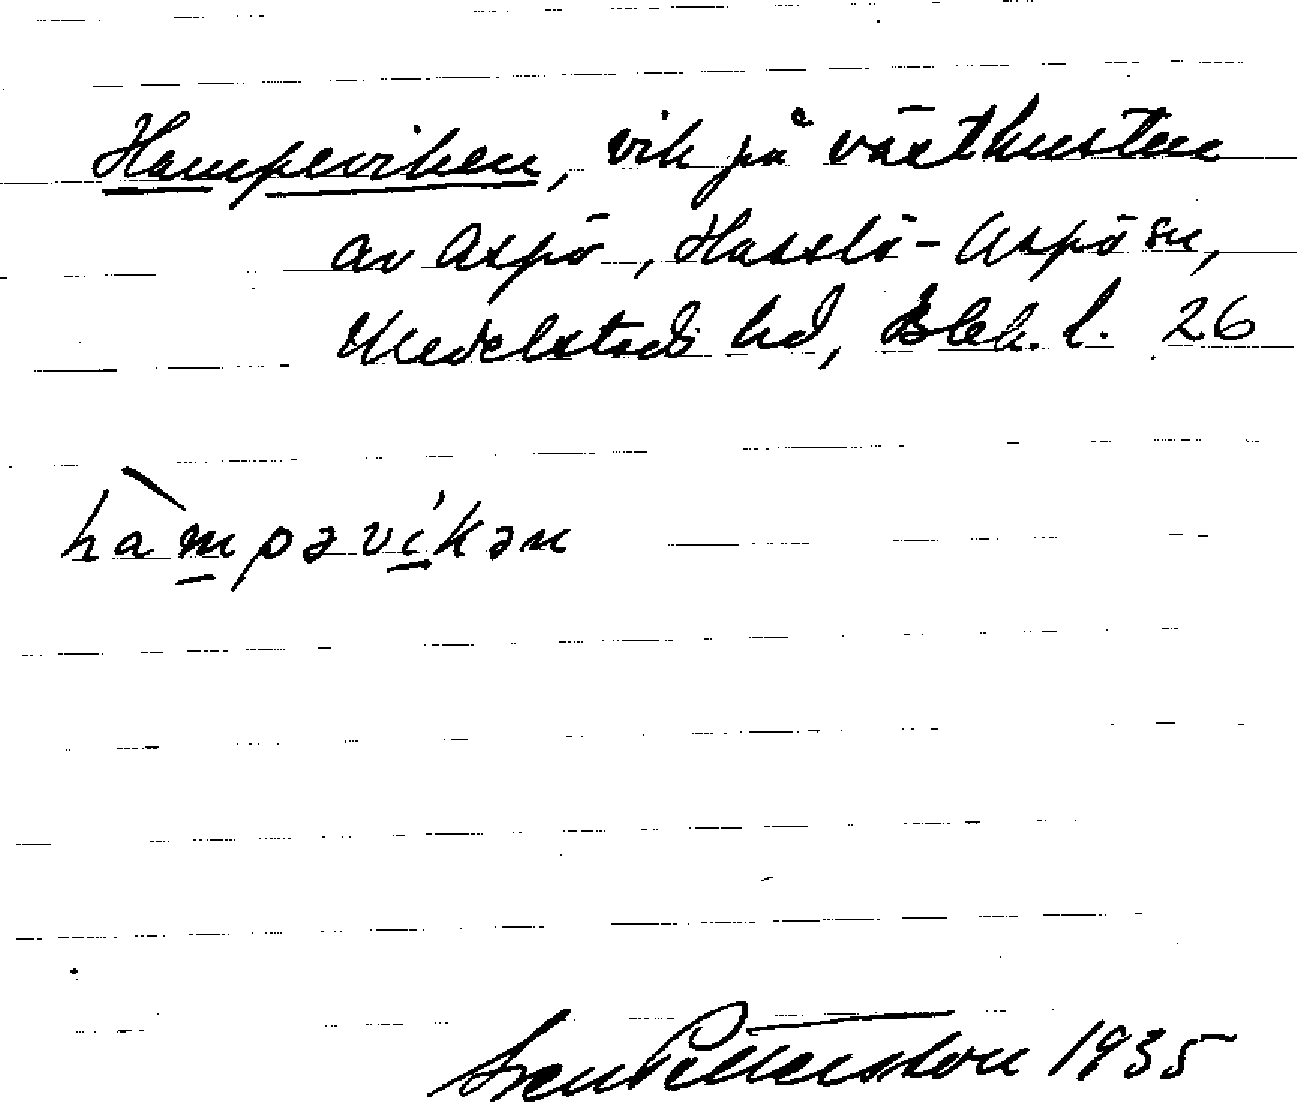 Hampeviken, vik på västkusten
av Aspö, Hasslö-Aspö sn,
Medelstads hd, Blek. l. 26
hàmpəvíkən
Sven Pettersson 1935